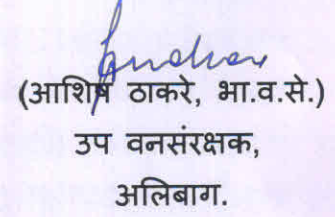 (आशिष ठाकरे, भा.व.से.)
उप वनसंरक्षक,
अलिबाग.